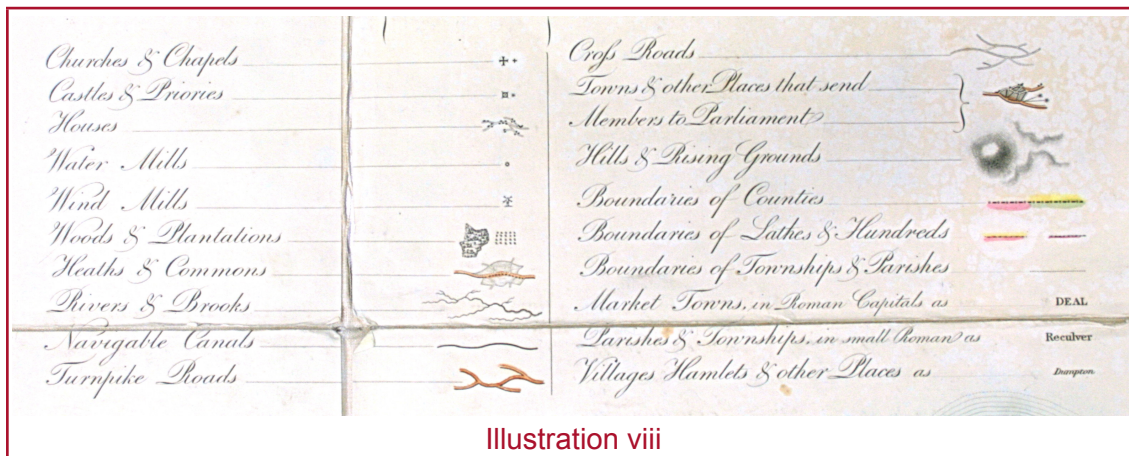 Churches & Chapels
Castles & Priories
Houses
Water Mills
Wind Mills
Woods & Plantations
Heaths & Commons
Rivers & Brooks
Navigable Canals
Turnpike Roads
Croſs Roads
Towns & other Places that send
Members to Parliament
Hills & Rising Grounds
Boundaries of Counties
Boundaries of Lathes & Hundreds
Boundaries of Townships & Parishes
Market Towns, in Roman Capitals as DEAL
Parishes & Townships, in small Roman as Reculver
Villages Hamlets & other Places as Dumpton
Illustration viii